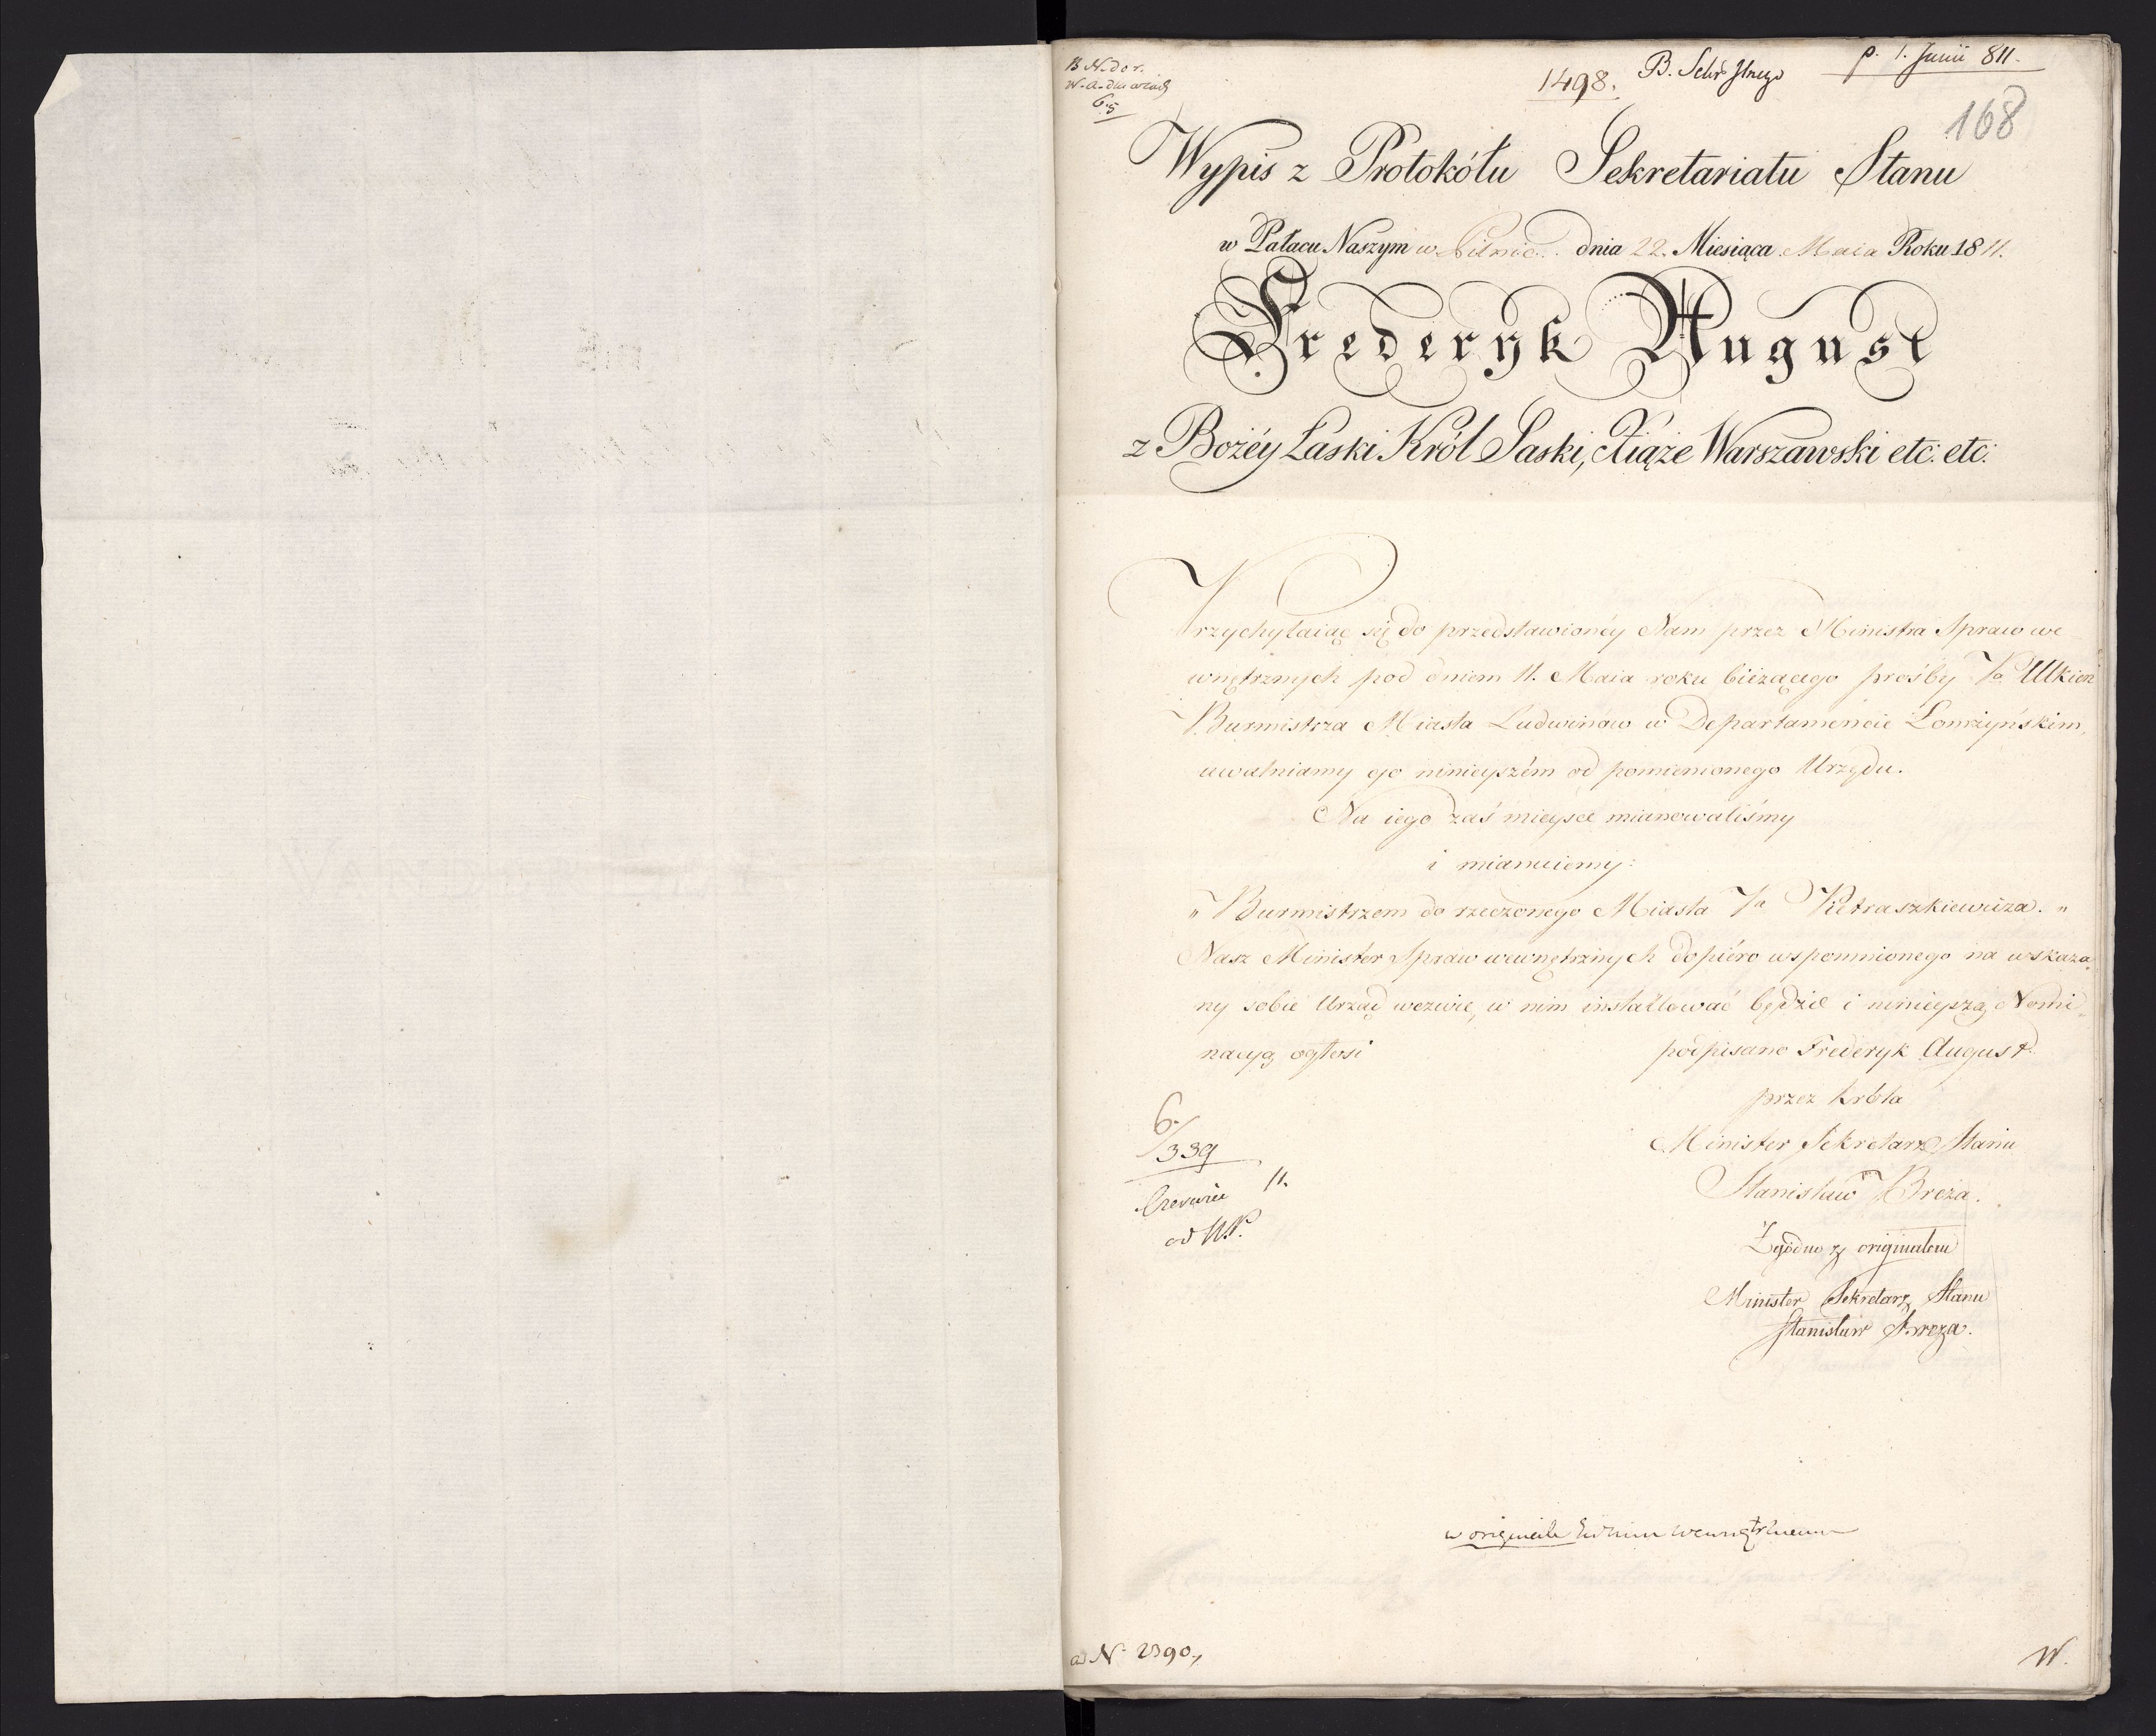 1498.
p. 1. Junii 811.
168
Wypis z Protokółu Sekretariatu Stanu
w Pałacu Naszym w Pilnic. dnia 22. Miesiąca Maia Roku 1811.
Frederyk August
z Bożéy Łaski Król Saski, Xiąże Warszawski etc: etc:
Przychylaiąc się do przedstawionéy Nam przez Ministra Spraw we
wnętrznych pod dniem 11. Maia roku bieżącego prośby
Burmistrza Miasta Ludwinow w Departamencie Łomżyńskim,
uwalniamy go ninieyszém od pomienionego Urzędu.
Na iego zaś mieysce mianowaliśmy
i mianuiemy:
„Burmistrzem do rzeczonego Miasta Pietraszkiewicza."
Nasz Minister Spraw wewnętrznych dopiéro wspomnionego na wskaza„
ny sobie Urząd wezwie, w nim installować będzie i ninieyszą Nomi„
nacyą ogłosi
podpisano Frederyk August.
przez Króla
Minister Sekretarz Stanu
Stanisław Breza.
6/339
11.
Zgodno z originałem
Minister Sekretarz Stanu
Stanisław Breza.
w originale
ad N. 2390.,
W.